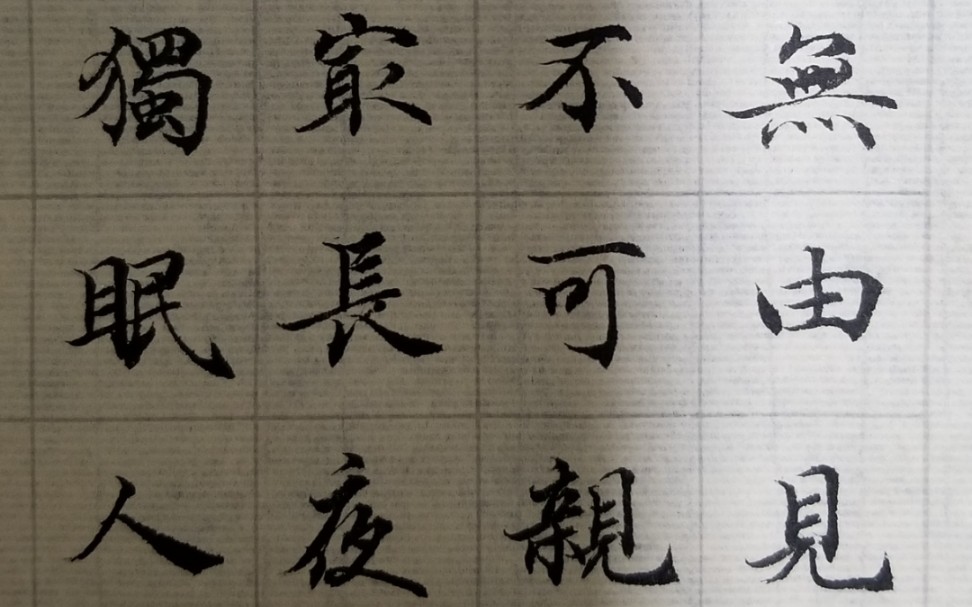 無由見
不可親
㝡長夜
獨眠人